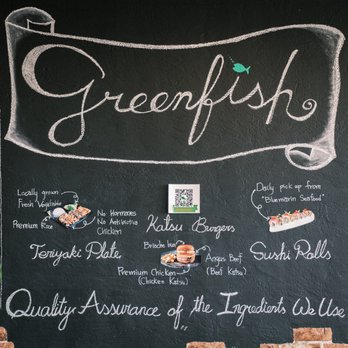 Greenfish
Locally grown
Fresh Vegetables
Premium Rice
No Hormones
No Antibiotics
Chicken
Teriyaki Plate
Katsu Burgers
Brioche bun
Angus Beef
(Beef Katsu)
Premium Chicken
(Chicken Katsu)
Daily pick up from
"Bluemarin Seafood"
Sushi Rolls
Quality Assurance of the Ingredients We Use